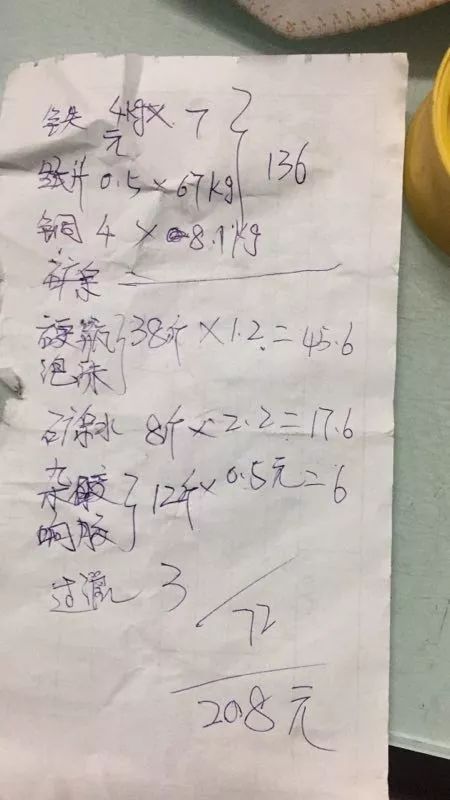 铁 4kg × 7
元
纸片 0.5 × 67kg
136
铜 4 × 8.1kg
矿泉
硬瓶 38斤 × 1.2 = 45.6
泡沫
矿泉水 8斤 × 2.2 = 17.6
杂胶 12斤 × 0.5元 = 6
响胶
3
72
208元